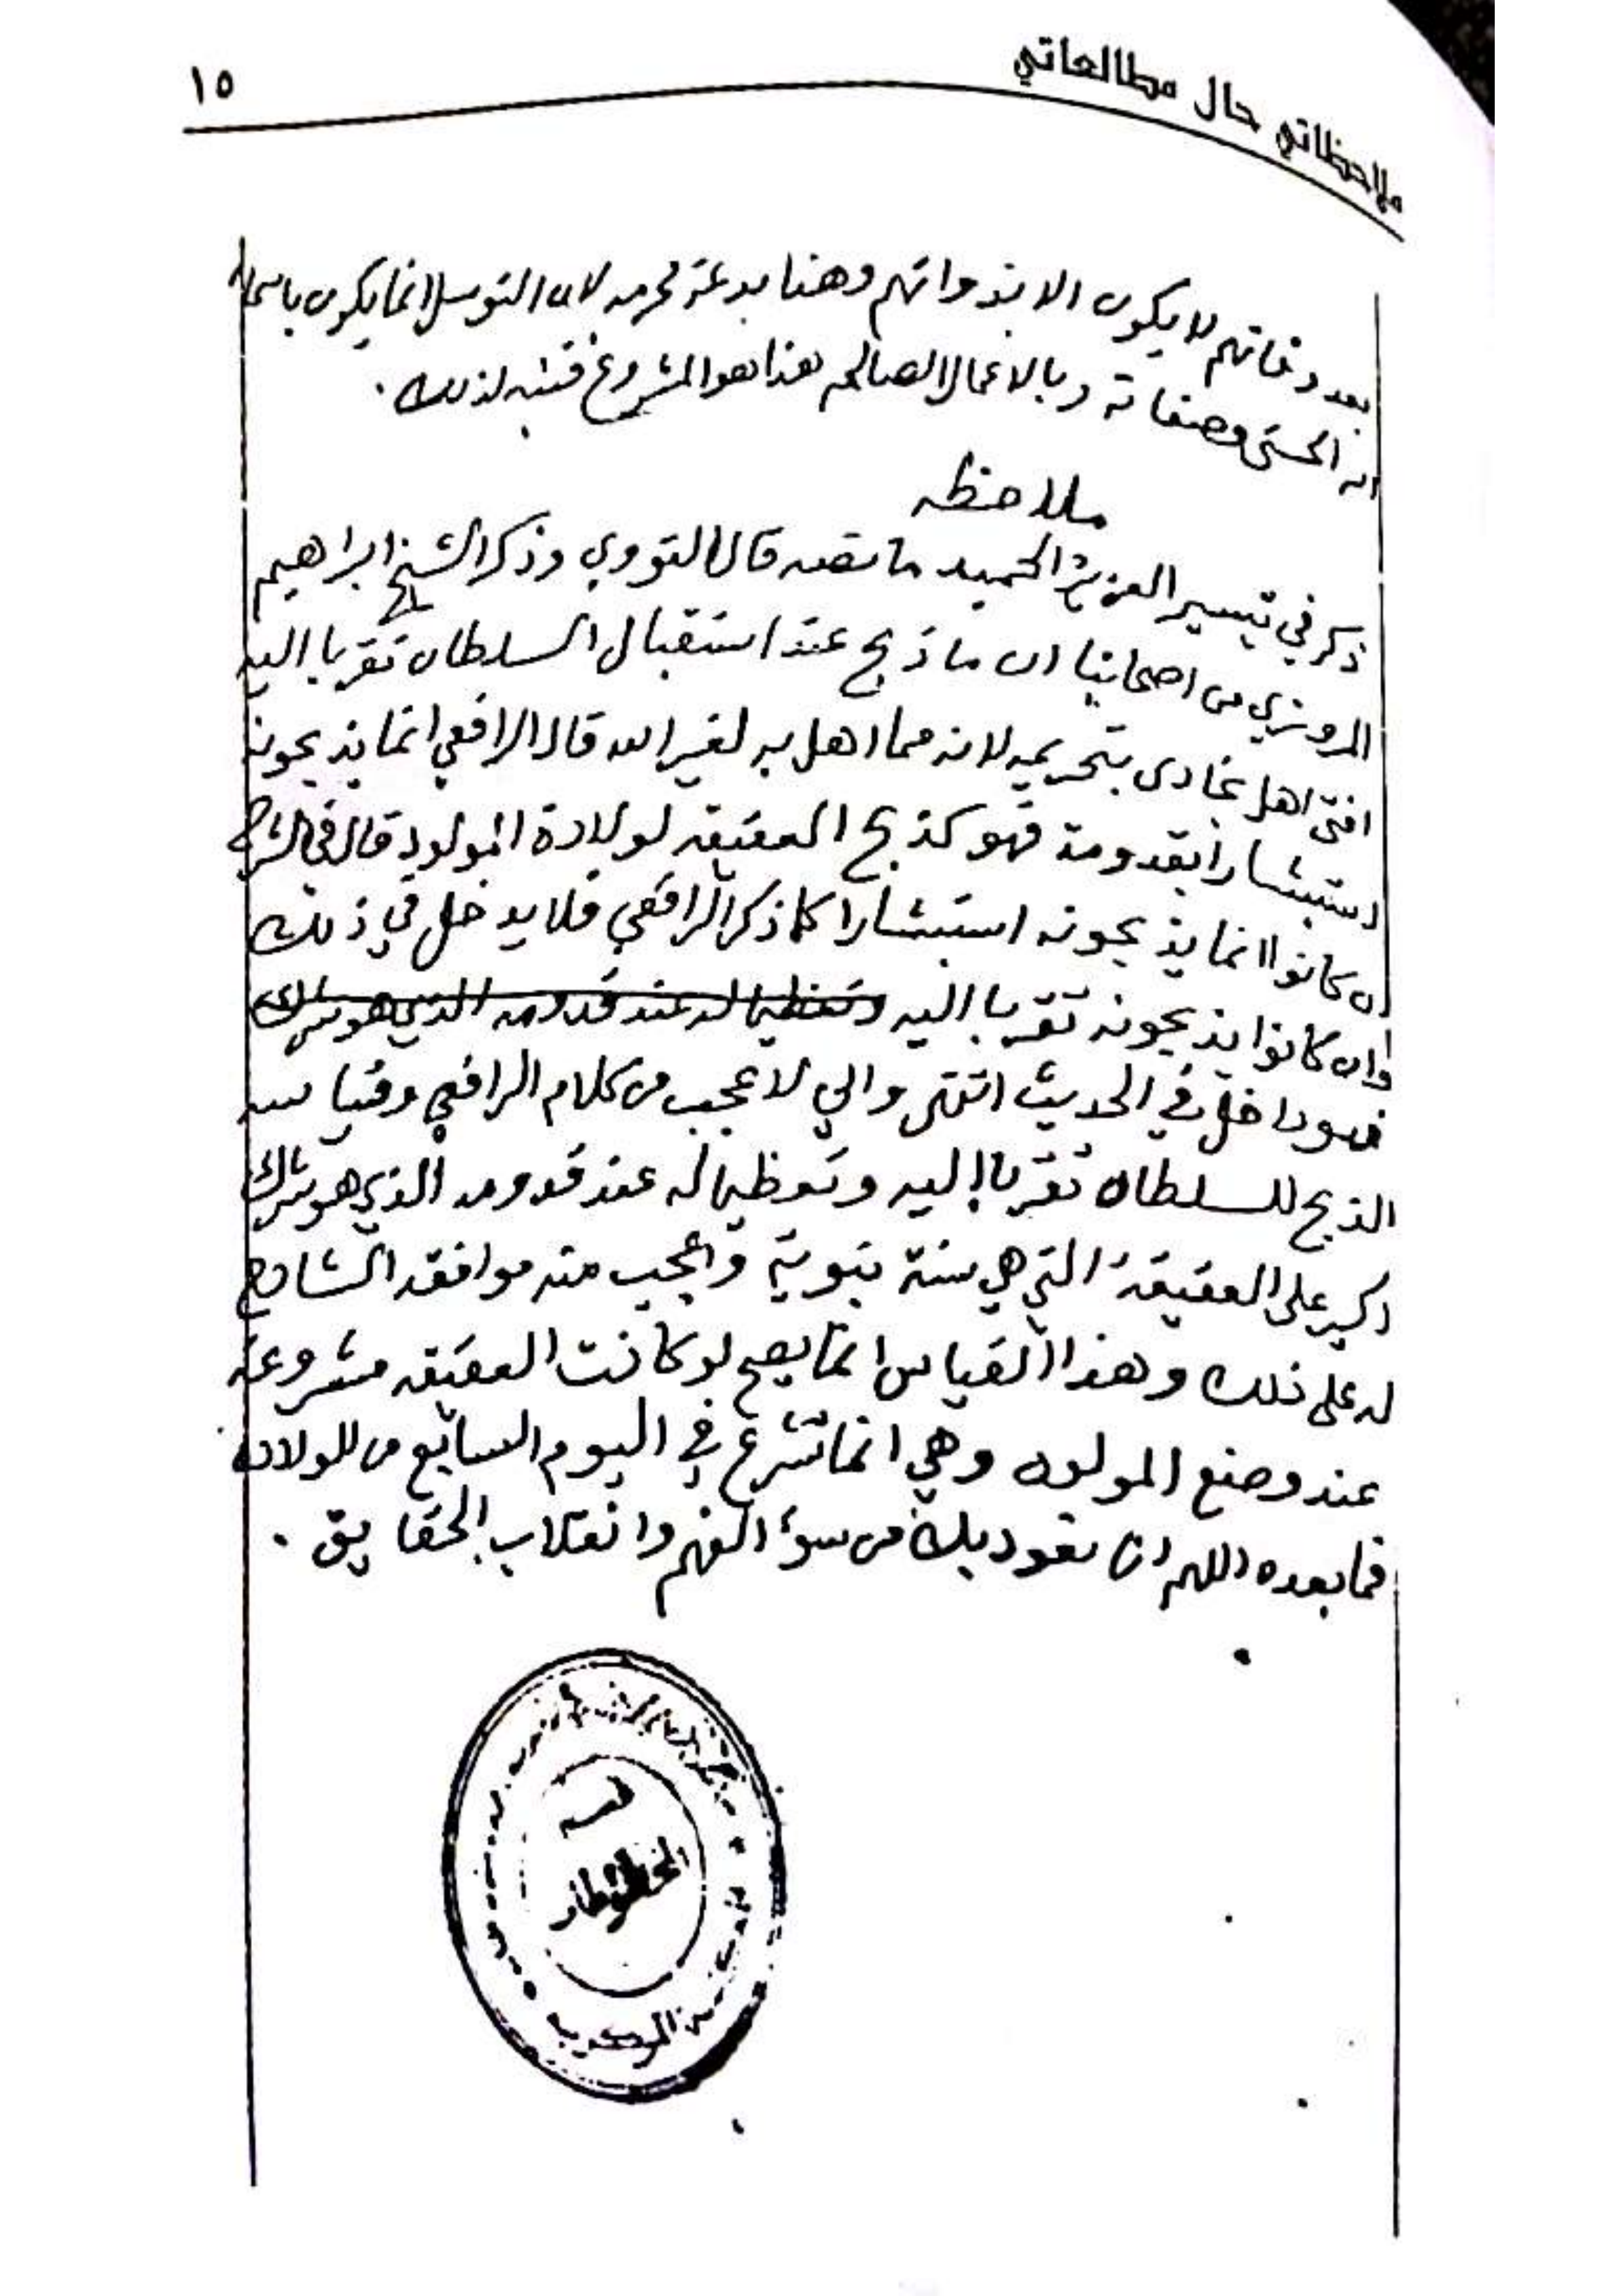 ملاحظاتي حال مطالعاتي
١٥
بعد وفاتهم لا يكون الا بذواتهم وهنا بدعة محرمه لان التوسل انما يكون باسماء
الله الحسنى وصفاته وبالاعمال الصالحه هذا هو المشروع فتنبه لذلك .
ملاحظه
ذكر في تيسير العزيز الحميد ما نصه قال النووي وذكر الشيخ ابراهيم
المروزي من اصحابنا ان ما ذبح عند استقبال السلطان تقربا اليه
افتى اهل بخارى بتحريمه لانه مما اهل به لغير الله قال الرافعي انما يذبحونه
استبشارا بقدومه فهو كذبح العقيقه لولادة المولود قال في الشرح
ان كانوا انما يذبحونه استبشارا كما ذكر الرافعي فلا يدخل في ذلك
وان كانوا يذبحونه تقربا اليه وتعظيما له عند قدومه الذي هو شرك
فهو داخل في الحديث انتهى واني لاعجب من كلام الرافعي وقياسه
الذبح للسلطان تقربا إليه وتعظيما له عند قدومه الذي هو شرك
اكبر على العقيقة التي هي سنة نبوية واعجب منه موافقة الشارح
له على ذلك وهذا القياس انما يصح لو كانت العقيقه مشروعة
عند وضع المولود وهي انما تشرع في اليوم السابع من الولادة
فما بعده اللهم انا نعوذ بك من سوء الفهم وانقلاب الحقايق .
قسم
المخطوطات